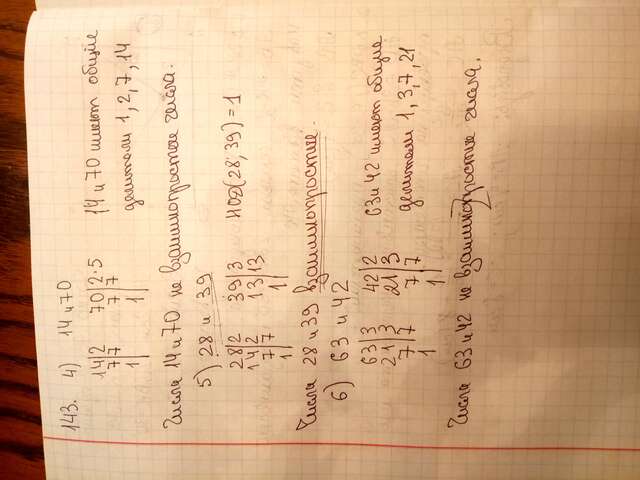 143. 4) 14 и 70
14|2 70|2·5 14 и 70 имеют общие
7|7 7|7 делители 1, 2, 7, 14
1| 1|
Числа 14 и 70 не взаимнопростые числа.
5) 28 и 39
28|2 39|3 НОД(28; 39) = 1
14|2 13|13
7|7 1|
1|
Числа 28 и 39 взаимнопростые.
6) 63 и 42
63|3 42|2 63 и 42 имеют общие
21|3 21|3 делители 1, 3, 7, 21
7|7 7|7
1 1|
Числа 63 и 42 не взаимнопростые числа.